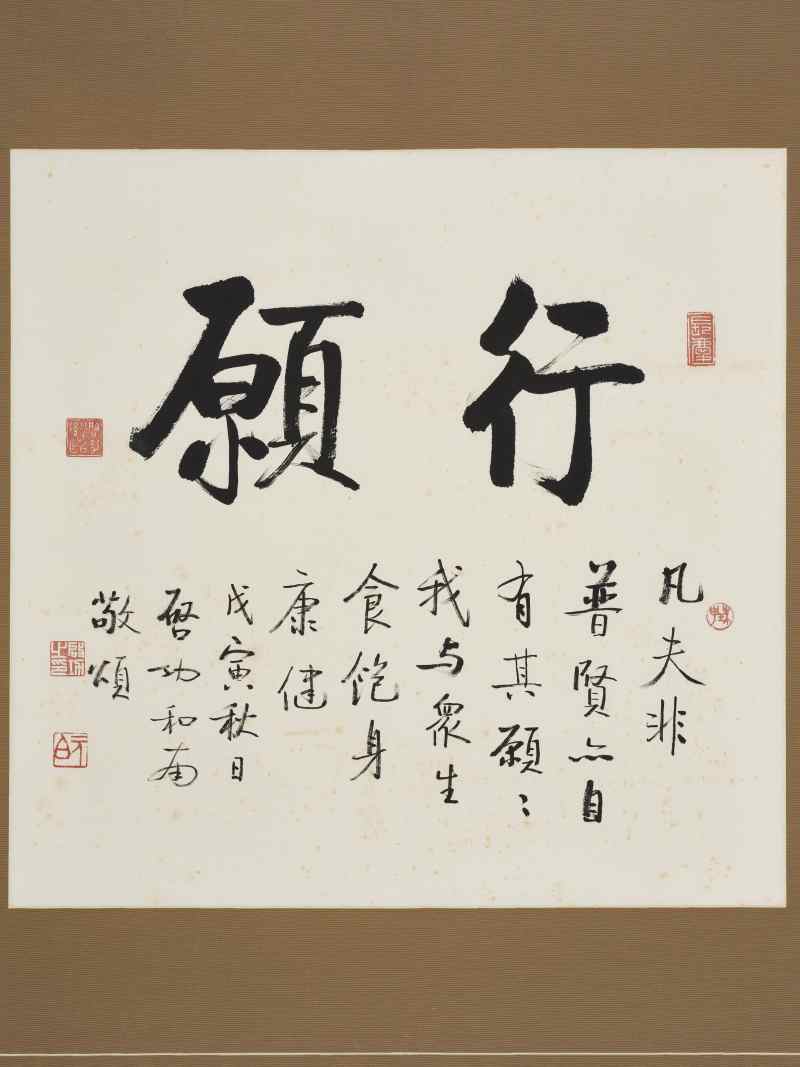 行願
凡夫非
普賢亦自
有其願〻
我与眾生
食飽身
康健
戊寅秋日
啓功和南
敬頌